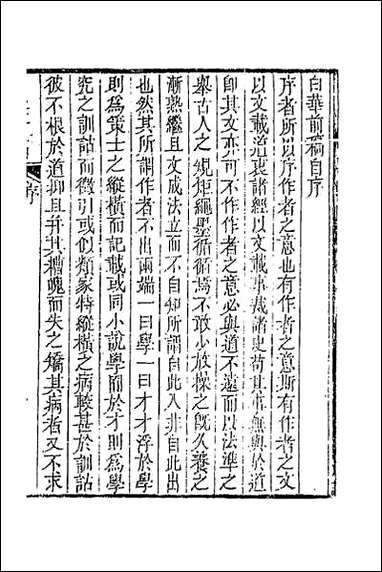 白華前稿自序
序者所以序作者之意也有作者之意斯有作者之文
以文載道衷諸經以文載事裁諸史苟其事無與於道
即其文亦可不作作者之意必與道不遠而以法準之
舉古人之規矩繩墨循循焉不敢小放操之旣久養之
漸熟繼且文成法立而不自知所謂自此入非自此出
也然其所謂作者不出兩端一曰學一曰才才浮於學
則爲策士之縱橫而記載或同小說學富於才則爲學
究之訓詁而徵引或似類家特縱橫之病較甚於訓詁
彼不根於道抑且并其糟魄而失之矯其病者又不求
序